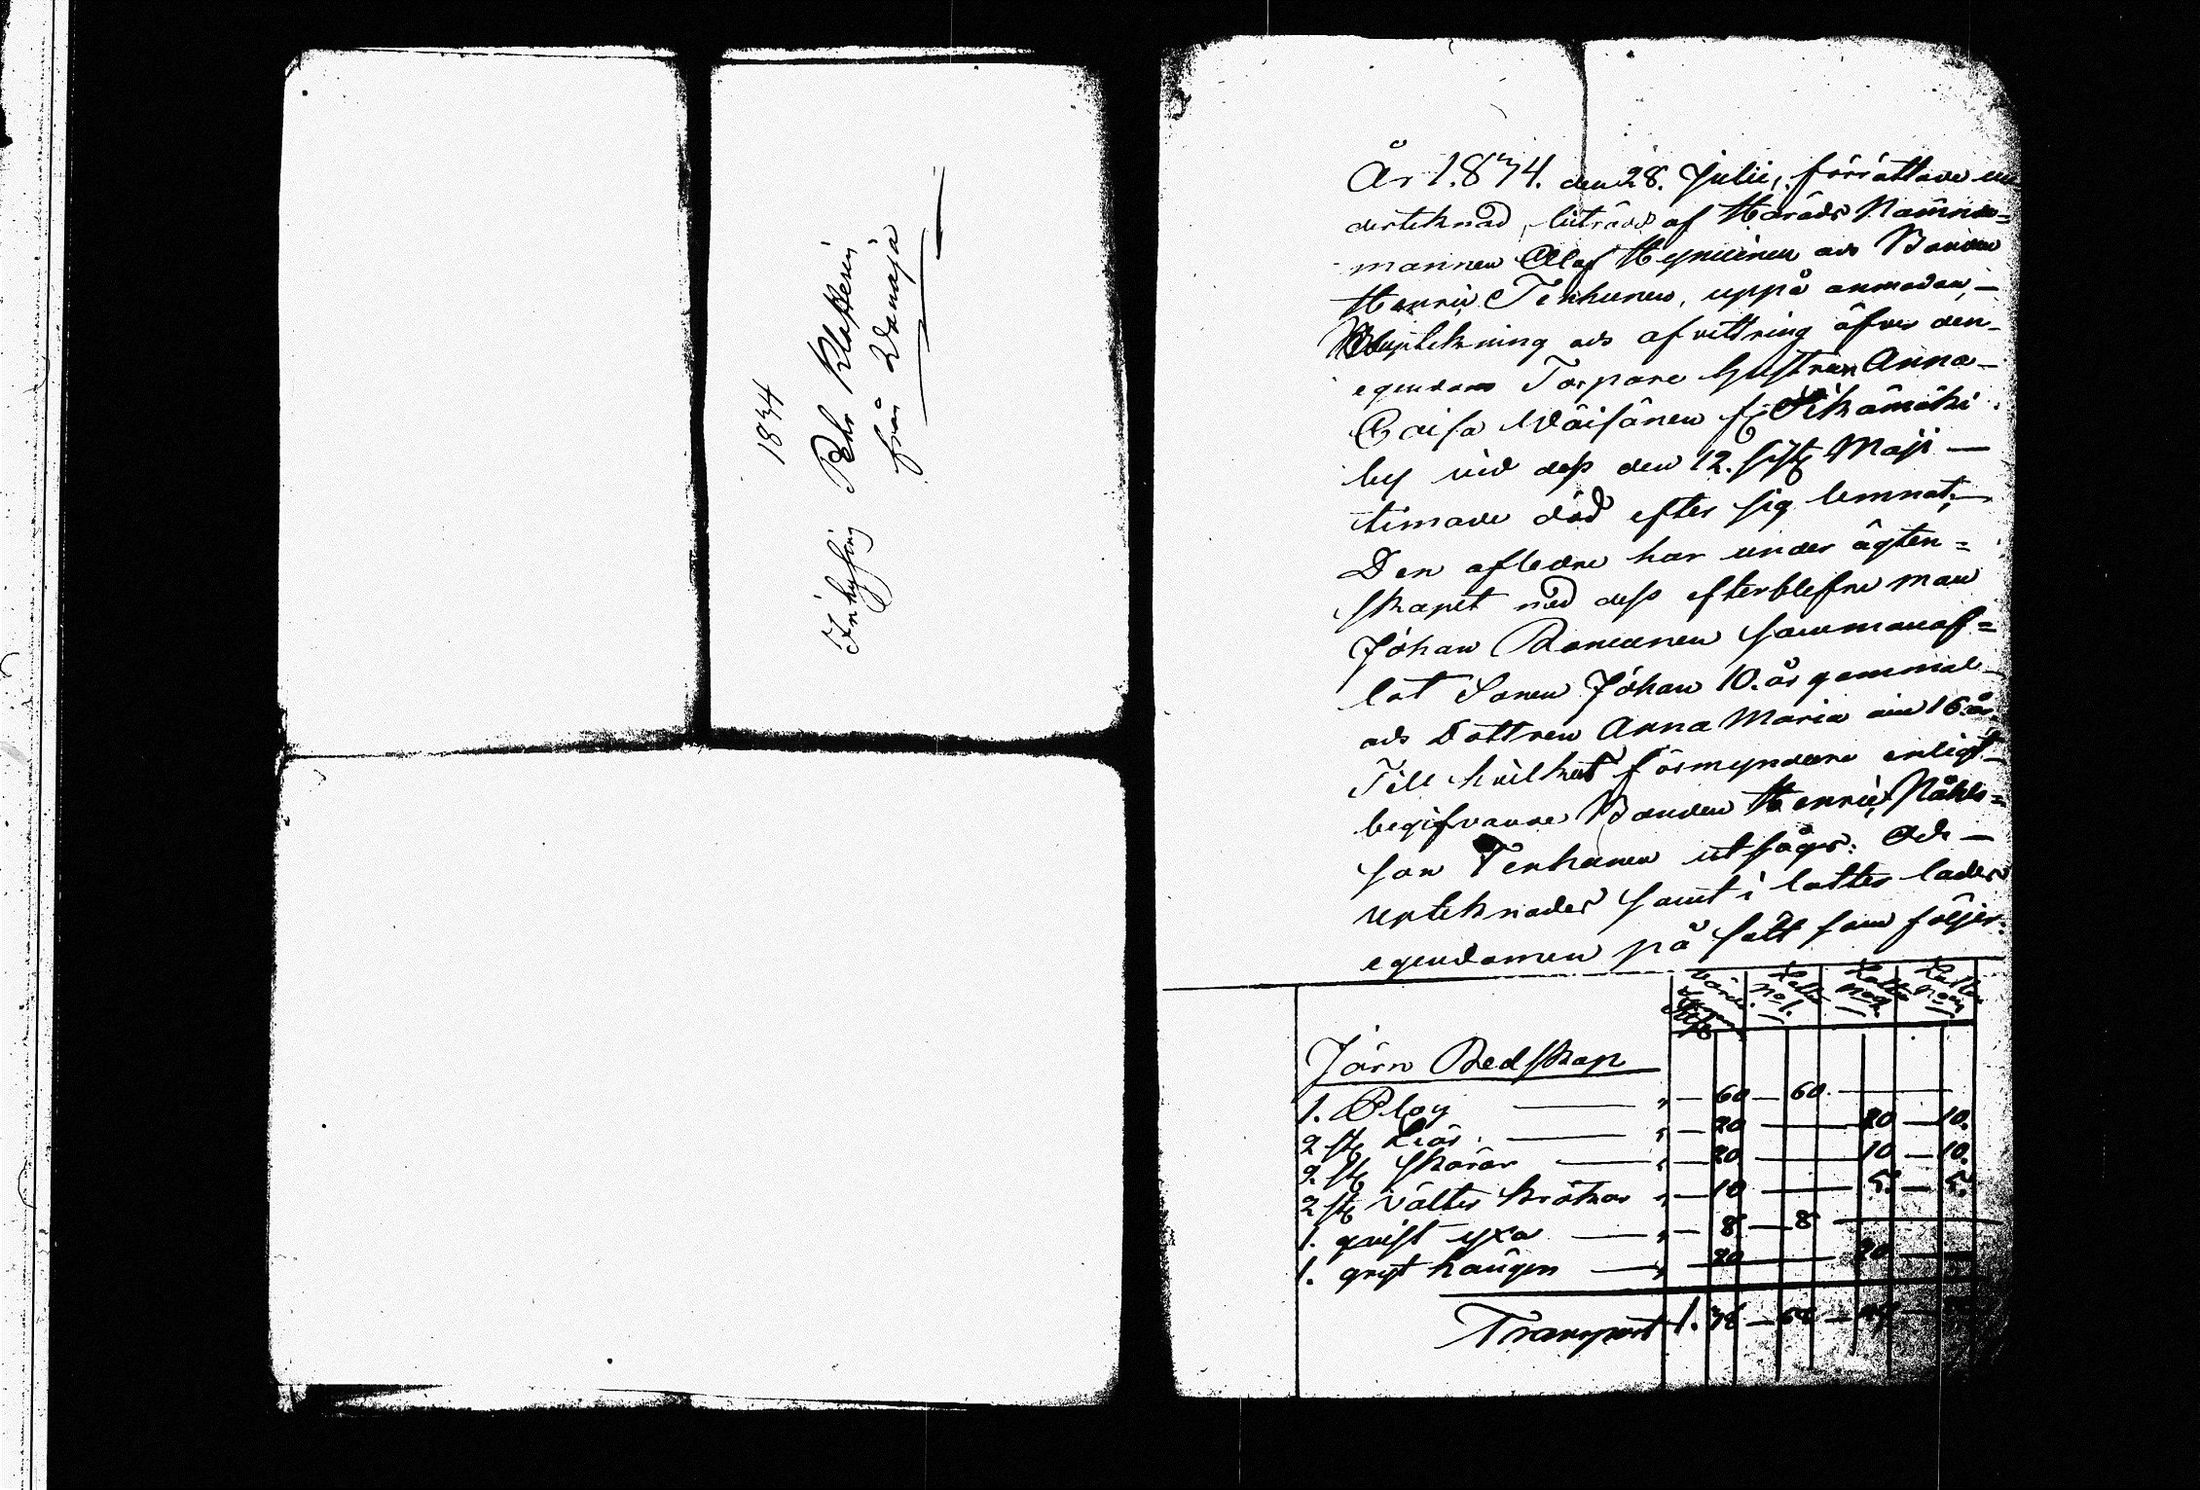 1834
Inhysing Pehr Klasseri
från Wanaja
År 1.834. den 28. Julii, förrättade un
derteknad, biträdd af Härads Nämnde=
mannen Olof Hynninen och Bonden
Henric Tenhunen, uppå anmodan,—
Uptekning och afvittring öfver den—
egendom Torpare hustrun Anna—
Caisa Wäisänen f: Pihämäki
by vid dess den 12. sistl Maji —
timade död efter sig lemnat,—
Den aflidne har under ägten=
skapet med dess efterblefne man
Johan Romunen sammanaf=
lat Sonen Johan 10. år gammal—
och Dottren Anna Maria om 16. år.
Till hvilket förmyndare enligt—
begifvande Bonden Henric Påhls=
son Tenhunen utsågs: Och —
upteknades samt i lotter lades
egendomen på sätt som följer:
Lotten No 1. Lotten No 2. Lotten No 3
Järn Redskap
1. Plog — 60 — 60
2 st Liar — 20 — 10 — 10.
2 st skäror — 20 — 10 — 10.
2 st välter krokar — 10 — 5. — 5.
1. qvist yxa — 8 — 8
1. gryt hängen — 20 — 20
Transport 1. 38 — 68 —